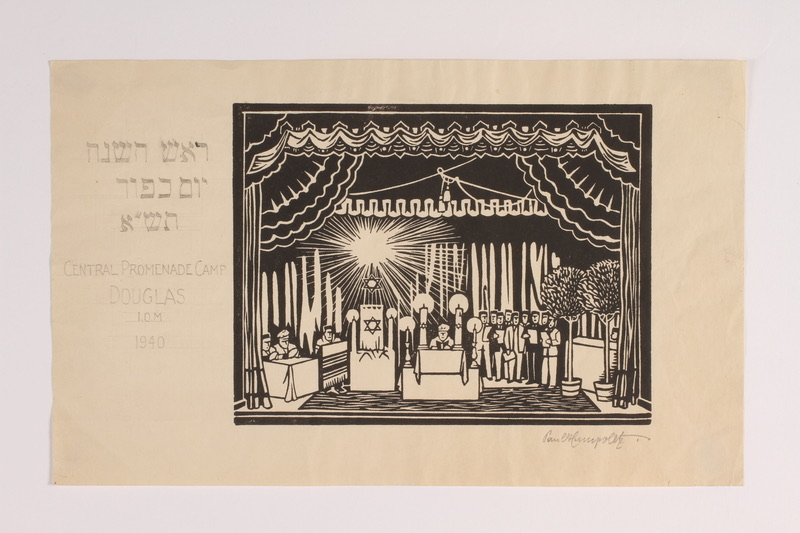 ראש השנה
יום כפור
תש״א
CENTRAL PROMENADE CAMP
DOUGLAS
I.O.M
1940
Paul